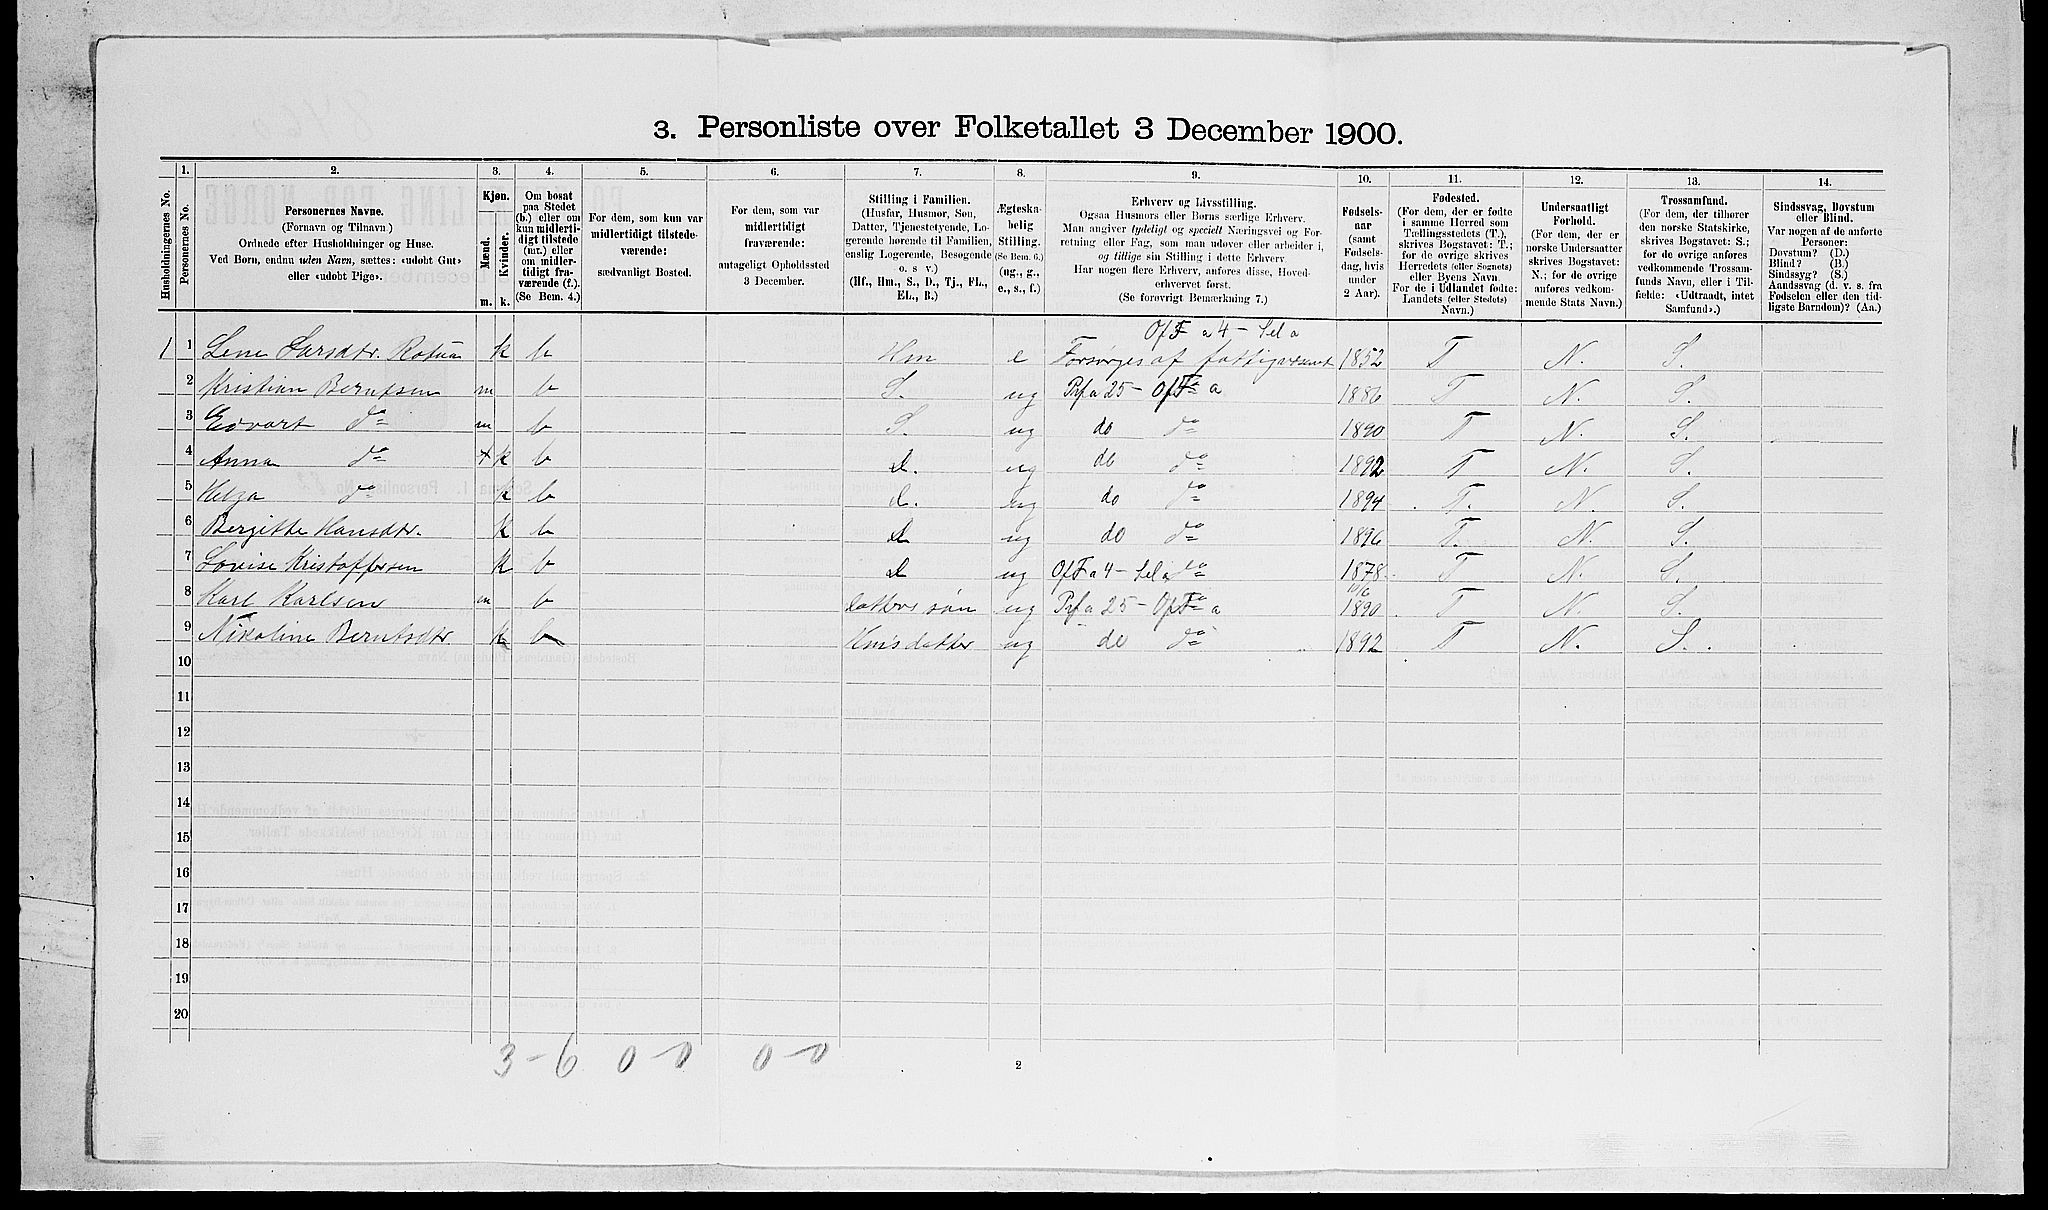 3. Personliste over Folketallet 3 December 1900.
Husholdningernes No.
1. Personernes No.
2. Personernes Navne.
(Fornavn og Tilnavn.)
Ordnede efter Husholdninger og Huse.
Ved Børn, endnu uden Navn, sættes: «udøbt Gut»
eller «udøbt Pige».
3. Kjøn.
Mænd. Kvinder.
m. k.
4. Om bosat
paa Stedet
(b.) eller om
kun midlerti-
digt tilstede
(mt.) eller
om midler-
tidigt fra-
værende (f.).
(Se Bem. 4.)
5. For dem, som kun var
midlertidigt tilstede-
værende:
sædvanligt Bosted.
6. For dem, som var
midlertidigt
fraværende:
antageligt Opholdssted
3 December.
7. Stilling i Familien.
(Husfar, Husmor, Søn,
Datter, Tjenestetyende, Lo-
gerende hørende til Familien,
enslig Logerende, Besøgende
o. s v.)
(Hf., Hm., S., D., Tj., FL.,
EL., B.)
8. Ægteska-
belig
Stilling.
(Se Bem. 6.)
(ug., g.,
e., s., f.)
9. Erhverv og Livsstilling.
Ogsaa Husmors eller Børns særlige Erhverv.
Man angiver tydeligt og specielt Næringsvei og For-
retning eller Fag, som man udøver eller arbeider i,
og tillige sin Stilling i dette Erhverv.
Har nogen flere Erhverv, anføres disse, Hoved-
erhvervet først.
(Se forøvrigt Bemærkning 7.)
10. Fødsels-
aar
(samt
Fødsels-
dag, hvis
under
2 Aar).
11. Fødested.
(For dem, der er fødte
i samme Herred som
Tællingsstedets (T.),
skrives Bogstavet: T.;
for de øvrige skrives
Herredets (eller Sognets)
eller Byens Navn
For de i Udlandet fødte:
Landets (eller Stedets)
Navn.)
12. Undersaatligt
Forhold.
(For dem, der er
norske Undersaatter
skrives Bogstavet:
N.; for de øvrige
anføres vedkom-
mende Stats Navn.)
13. Trossamfund.
(For dem, der tilhører
den norske Statskirke,
skrives Bogstavet: S.;
for de øvrige anføres
vedkommende Trossam-
funds Navn, eller i Til-
fælde: «Udtraadt, intet
Samfund».)
14. Sindssvag, Døvstum
eller Blind.
Var nogen af de anførte
Personer:
Døvstum? (D.)
Blind? (B.)
Sindssyg? (S.)
Aandssvag (d. v. s. fra
Fødselen eller den tid-
ligste Barndom)? (Aa.)
OfF a 4 - Sel a
1 1 Lene Larsdtr. k b Hm e Forsørges af fattigvæsenet 1852 T N. S.
2 Kristian Berntsen m b S. ug Pf a 25 - OfF a 1886 T N. S.
3 Edvart do m b S. ug do do 1890 T N. S.
4 Anna do k b d. ug do do 1892 T N. S.
5 Helga do k b d. ug do do 1894 T. N. S.
6 Bergitte Hansdtr. k b d ug do do 1896 T. N. S.
7 Lovise Kristoffersen k b d ug OfF a 4 - Sel a do 1878 T N. S.
8 Karl Karlsen m b datters søn ug Pf a 25 - OfF a 10/6 1890 T N. S.
9 Nikoline Berntsdtr k b Hm's datter ug do do 1892 T N. S.
10
11
12
13
14
15
16
17
18
19
20
3 - 6 0 - 0 0 - 0
2